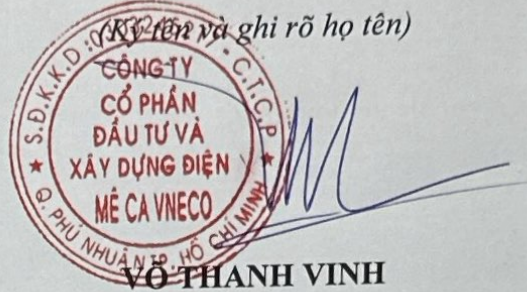 (Ký tên và ghi rõ họ tên)
S.Đ.K.K.D - C.T.C.P
CÔNG TY
CỔ PHẦN
ĐẦU TƯ VÀ
XÂY DỰNG ĐIỆN
MÊ CA VNECO
Q. PHÚ NHUẬN TP. HỒ CHÍ MINH
VÕ THANH VINH